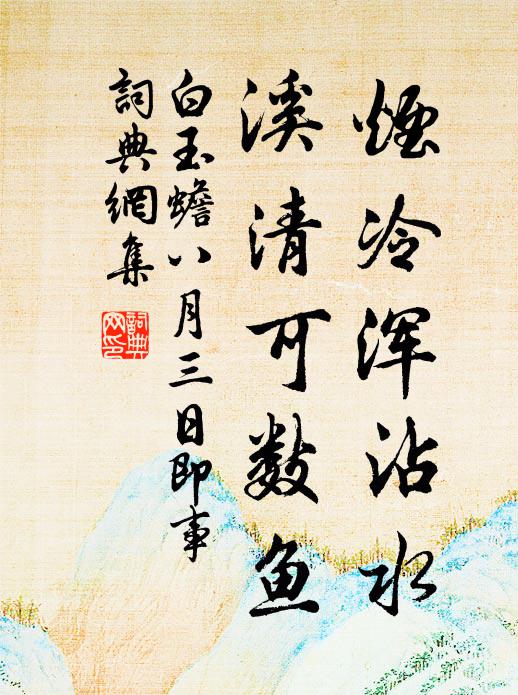 煙冷浑沾水
溪清可数鱼
白玉蟾八月三日即事
詞典網集
詞典网印